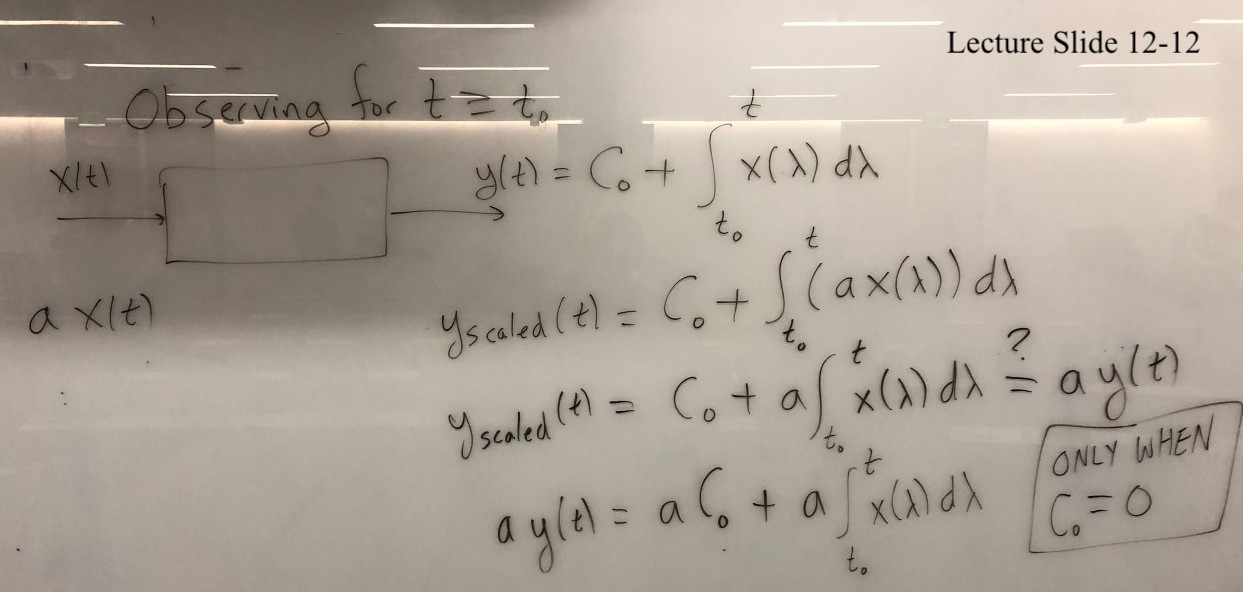 Lecture Slide 12-12
Observing for t ≥ t₀
x(t)
y(t) = C₀ + ∫_{t₀}^{t} x(λ) dλ
a x(t)
y_scaled(t) = C₀ + ∫_{t₀}^{t} (a x(λ)) dλ
y_scaled(t) = C₀ + a ∫_{t₀}^{t} x(λ) dλ ≟ a y(t)
a y(t) = a C₀ + a ∫_{t₀}^{t} x(λ) dλ
ONLY WHEN
C₀ = 0